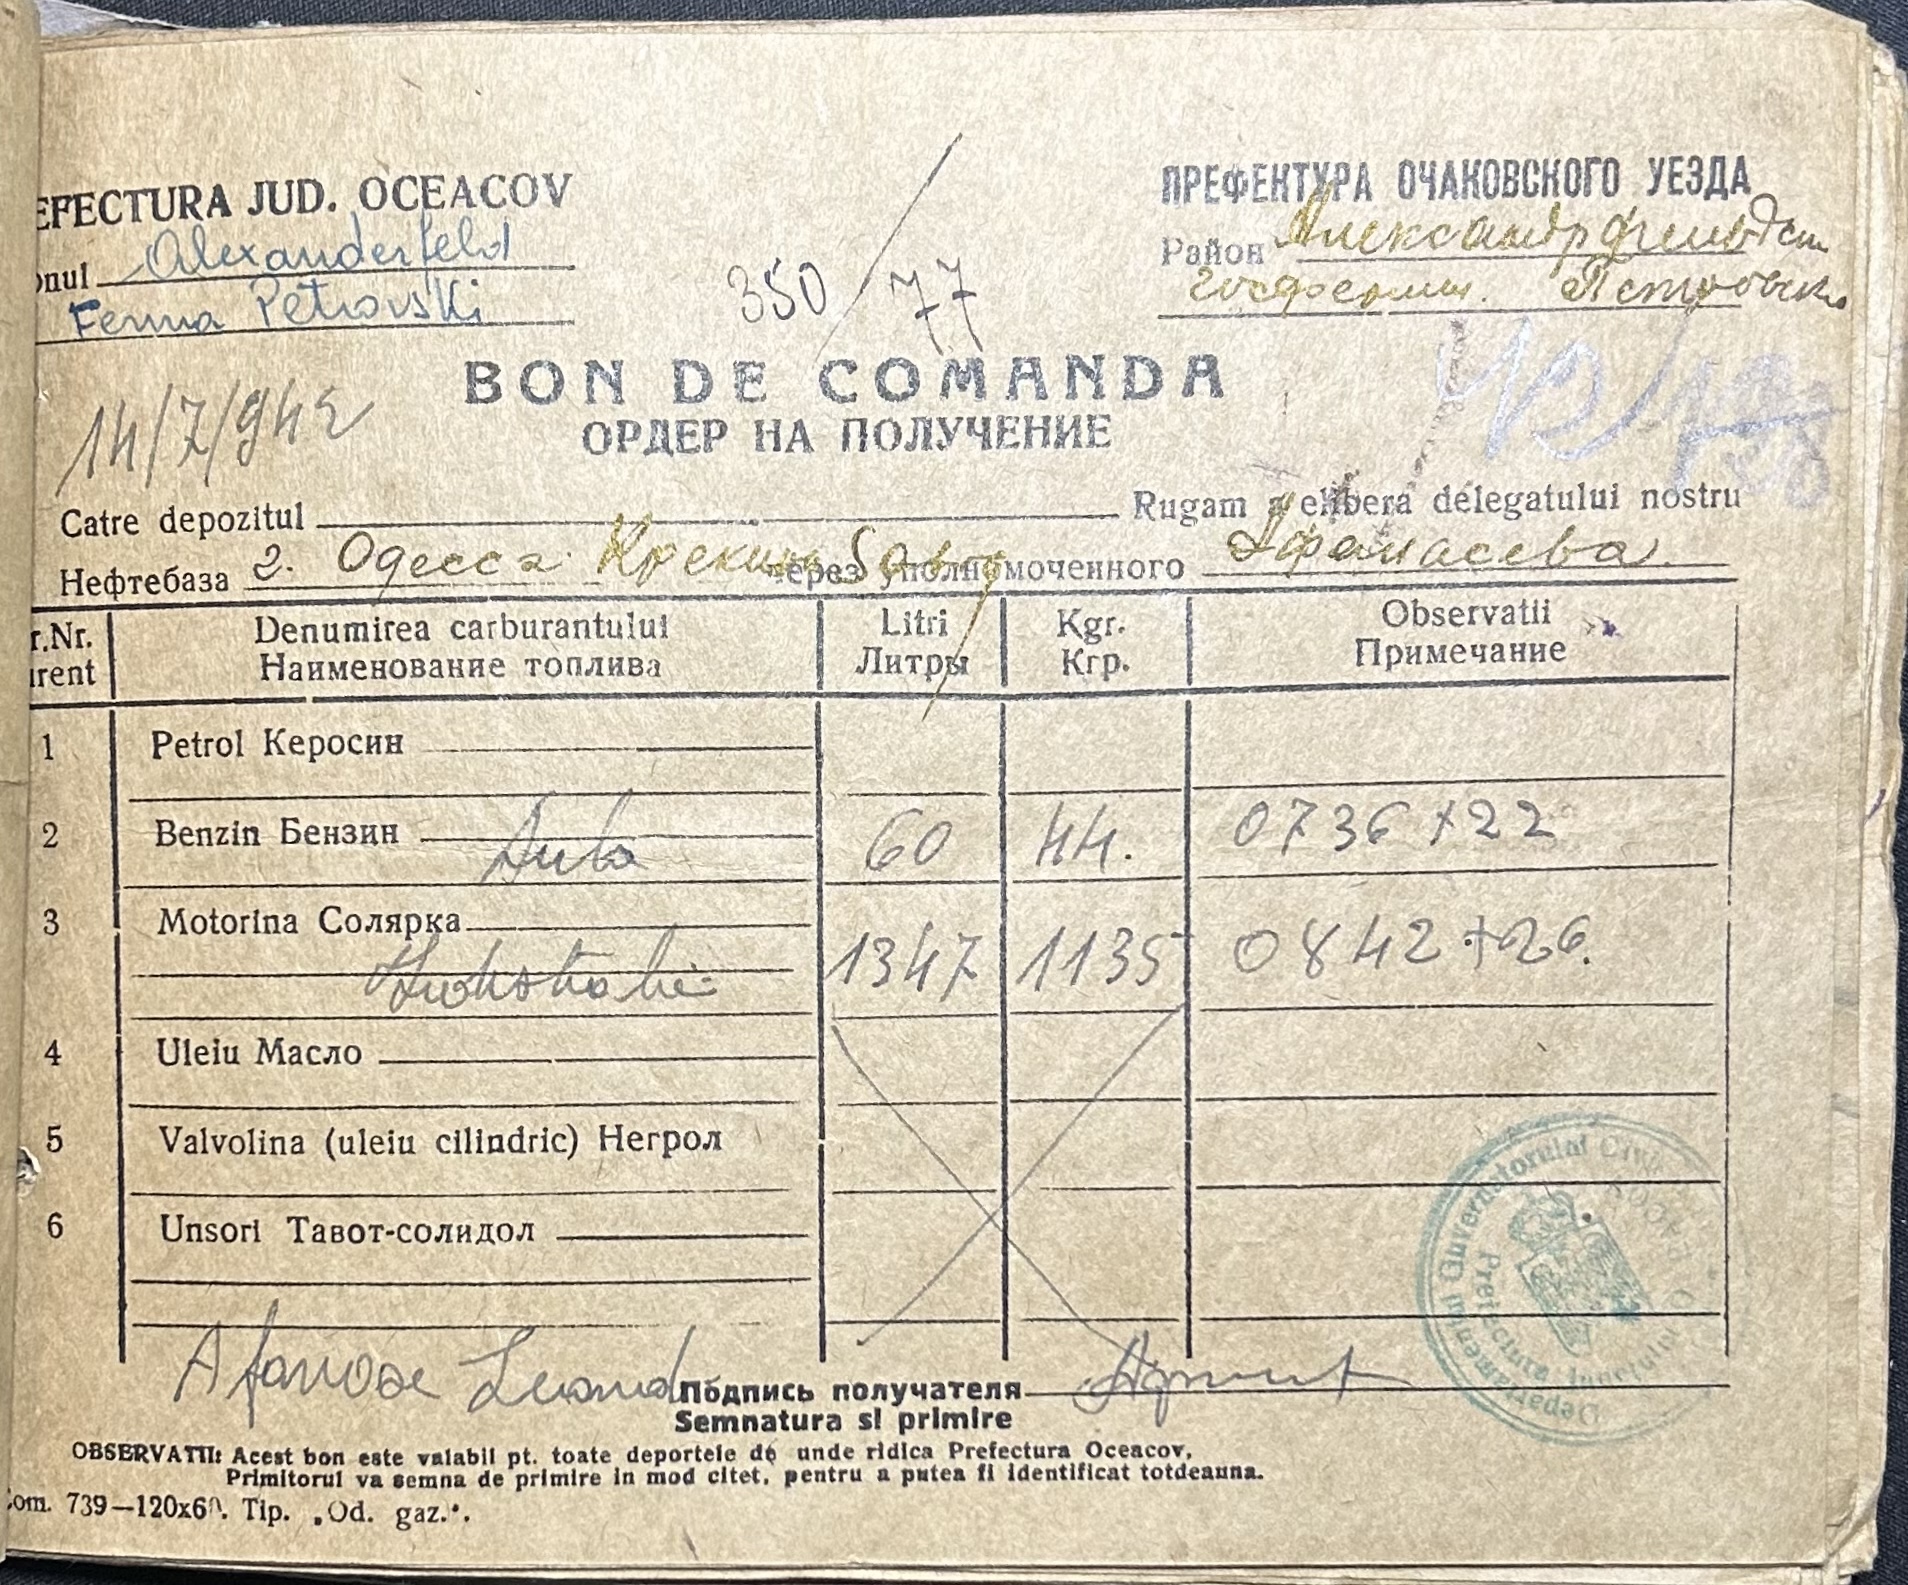 EFECTURA JUD. OCEACOV
onul Alexanderfeld
Ferma Petrovski
350/77
ПРЕФЕКТУРА ОЧАКОВСКОГО УЕЗДА
Район Александрфельдск
госферма. Петровск
BON DE COMANDA
ОРДЕР НА ПОЛУЧЕНИЕ
14/7/942
Catre depozitul Rugam a elibera delegatului nostru
Нефтебаза г. Одесса через уполномоченного Афанасева.
r.Nr. Denumirea carburantului Litri Kgr. Observatii
urent Наименование топлива Литры Кгр. Примечание
1 Petrol Керосин
2 Benzin Бензин 60 44. 0736 +22
3 Motorina Солярка 1347 1135 0842 +26.
4 Uleiu Масло
5 Valvolina (uleiu cilindric) Негрол
6 Unsori Тавот-солидол
Departamentul Guvernatorului Civil
Prefectura Județului
Подпись получателя
Semnatura si primire
OBSERVATII: Acest bon este valabil pt. toate deportele de unde ridica Prefectura Oceacov,
Primitorul va semna de primire in mod citet, pentru a putea fi identificat totdeauna.
Com. 739—120x60. Tip. „Od. gaz.".